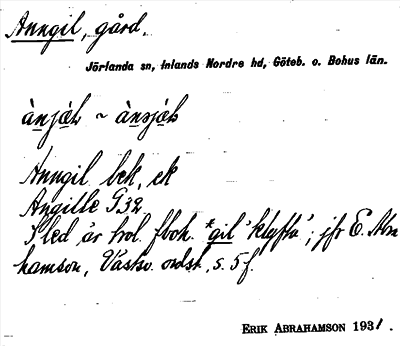 Anngil, gård.
Jörlanda sn, Inlands Nordre hd, Göteb. o. Bohus län.
Anngil bek, ek
Angille G32
I led är trol. fboh. *gil 'klyfta'; jfr E. Abra
hamson, Västsv. ordst, s. 5 f.
ERIK ABRAHAMSON 1931.